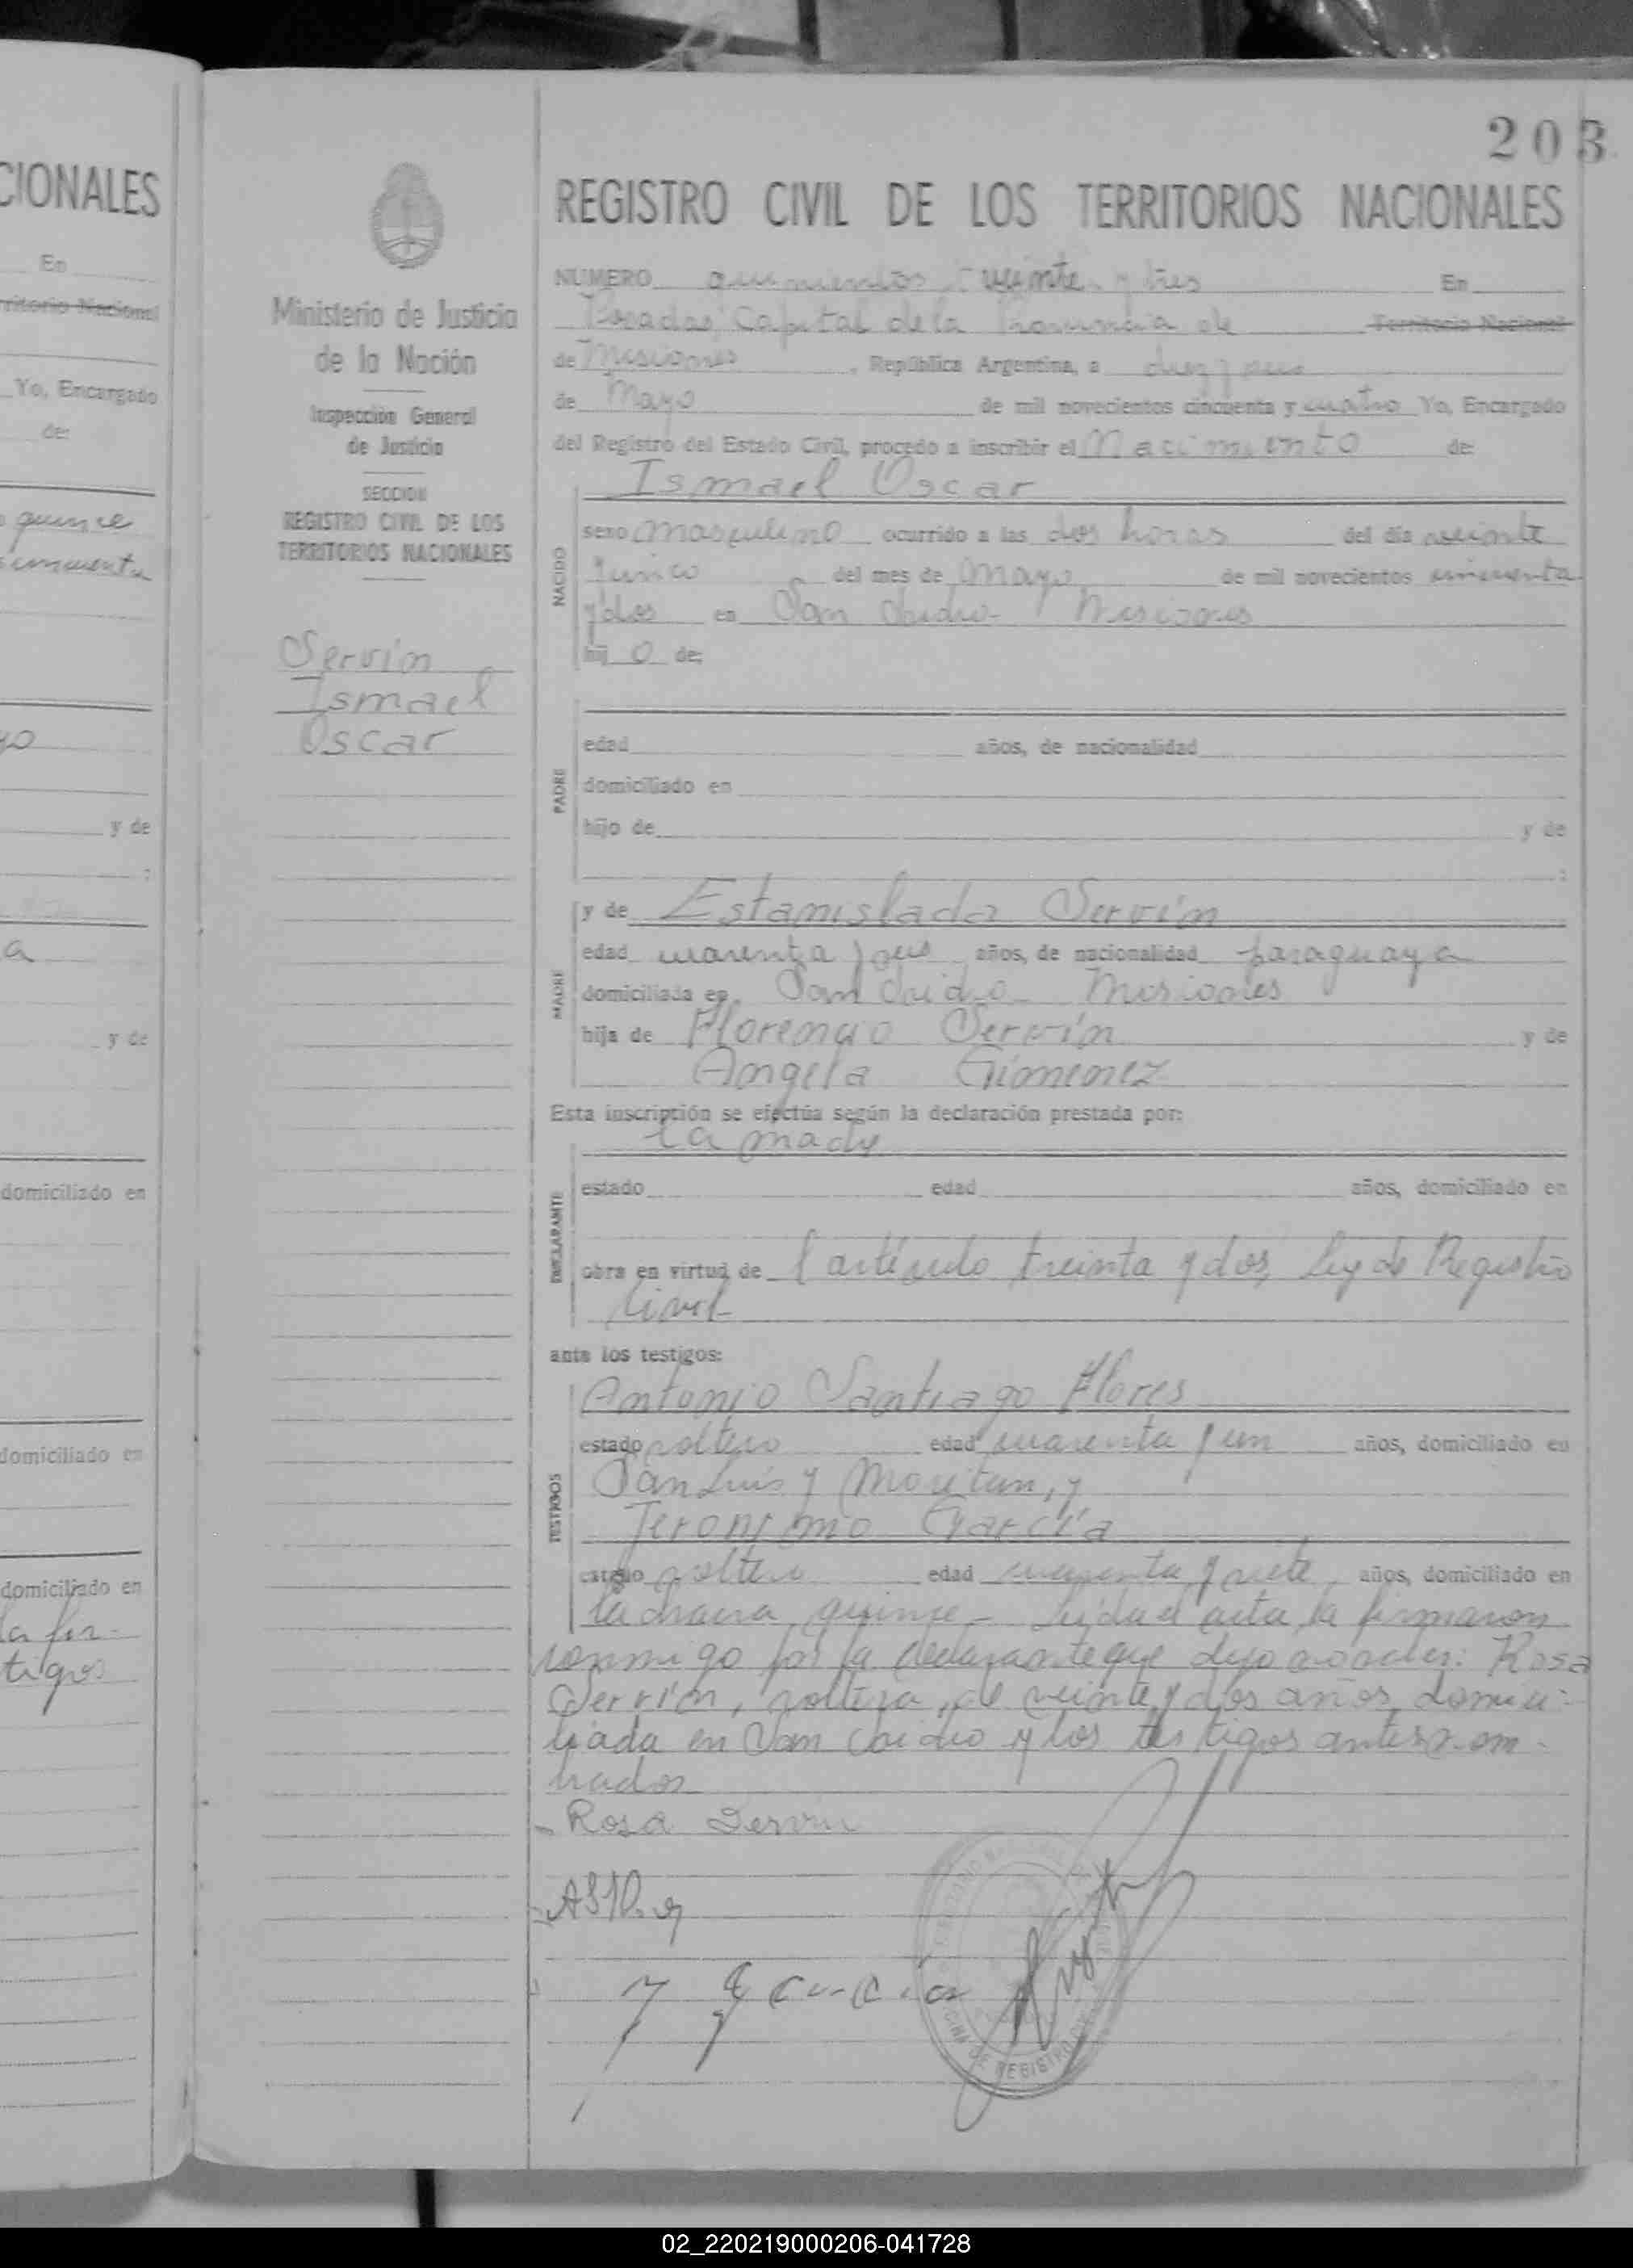 203
CIONALES
En
rritorio Nacional
Yo, Encargado
de:
quince
cincuenta
y de
a
y de
domiciliado en
domiciliado en
domiciliado en
la fir-
tigos
Ministerio de Justicia
de la Nación
Inspección General
de Justicia
SECCION
REGISTRO CIVIL DE LOS
TERRITORIOS NACIONALES
Servín
Ismael
Oscar
REGISTRO CIVIL DE LOS TERRITORIOS NACIONALES
NUMERO quinientos veinte y tres En
Posadas, Capital de la Provincia de Territorio Nacional
de Misiones, República Argentina, a diez y seis
de Mayo de mil novecientos cincuenta y cuatro Yo, Encargado
del Registro del Estado Civil, procedo a inscribir el Nacimiento de:
Ismael Oscar
NACIDO
sexo masculino ocurrido a las dos horas del día veinte
del mes de Mayo de mil novecientos cincuenta
y dos en San Isidro- Misiones
hij o de:
PADRE
edad años, de nacionalidad
domiciliado en
hijo de y de
;
MADRE
y de Estanislada Servín
edad cuarenta y seis años, de nacionalidad paraguaya
domiciliada en San Isidro- Misiones
hija de Florencio Servín y de
Angela Gimenez
Esta inscripción se efectúa según la declaración prestada por:
la madre
DECLARANTE
estado edad años, domiciliado en
obra en virtud de l artículo treinta y dos, Ley de Registro
Civil-
ante los testigos:
TESTIGOS
Antonio Santiago Flores
estado soltero edad cuarenta y un años, domiciliado en
San Luis y Moritan, y
Jeronimo García
estado soltero edad y siete años, domiciliado en
la chacra quince- Leida el acta, la firmaron
conmigo por la declarante que dijo no saber: Rosa
Servín, soltera, de veinte y dos años, domici-
liada en San Isidro y los testigos antes nom-
brados
- Rosa Servin
OFICINA DE REGISTRO CIVIL
02_220219000206-041728